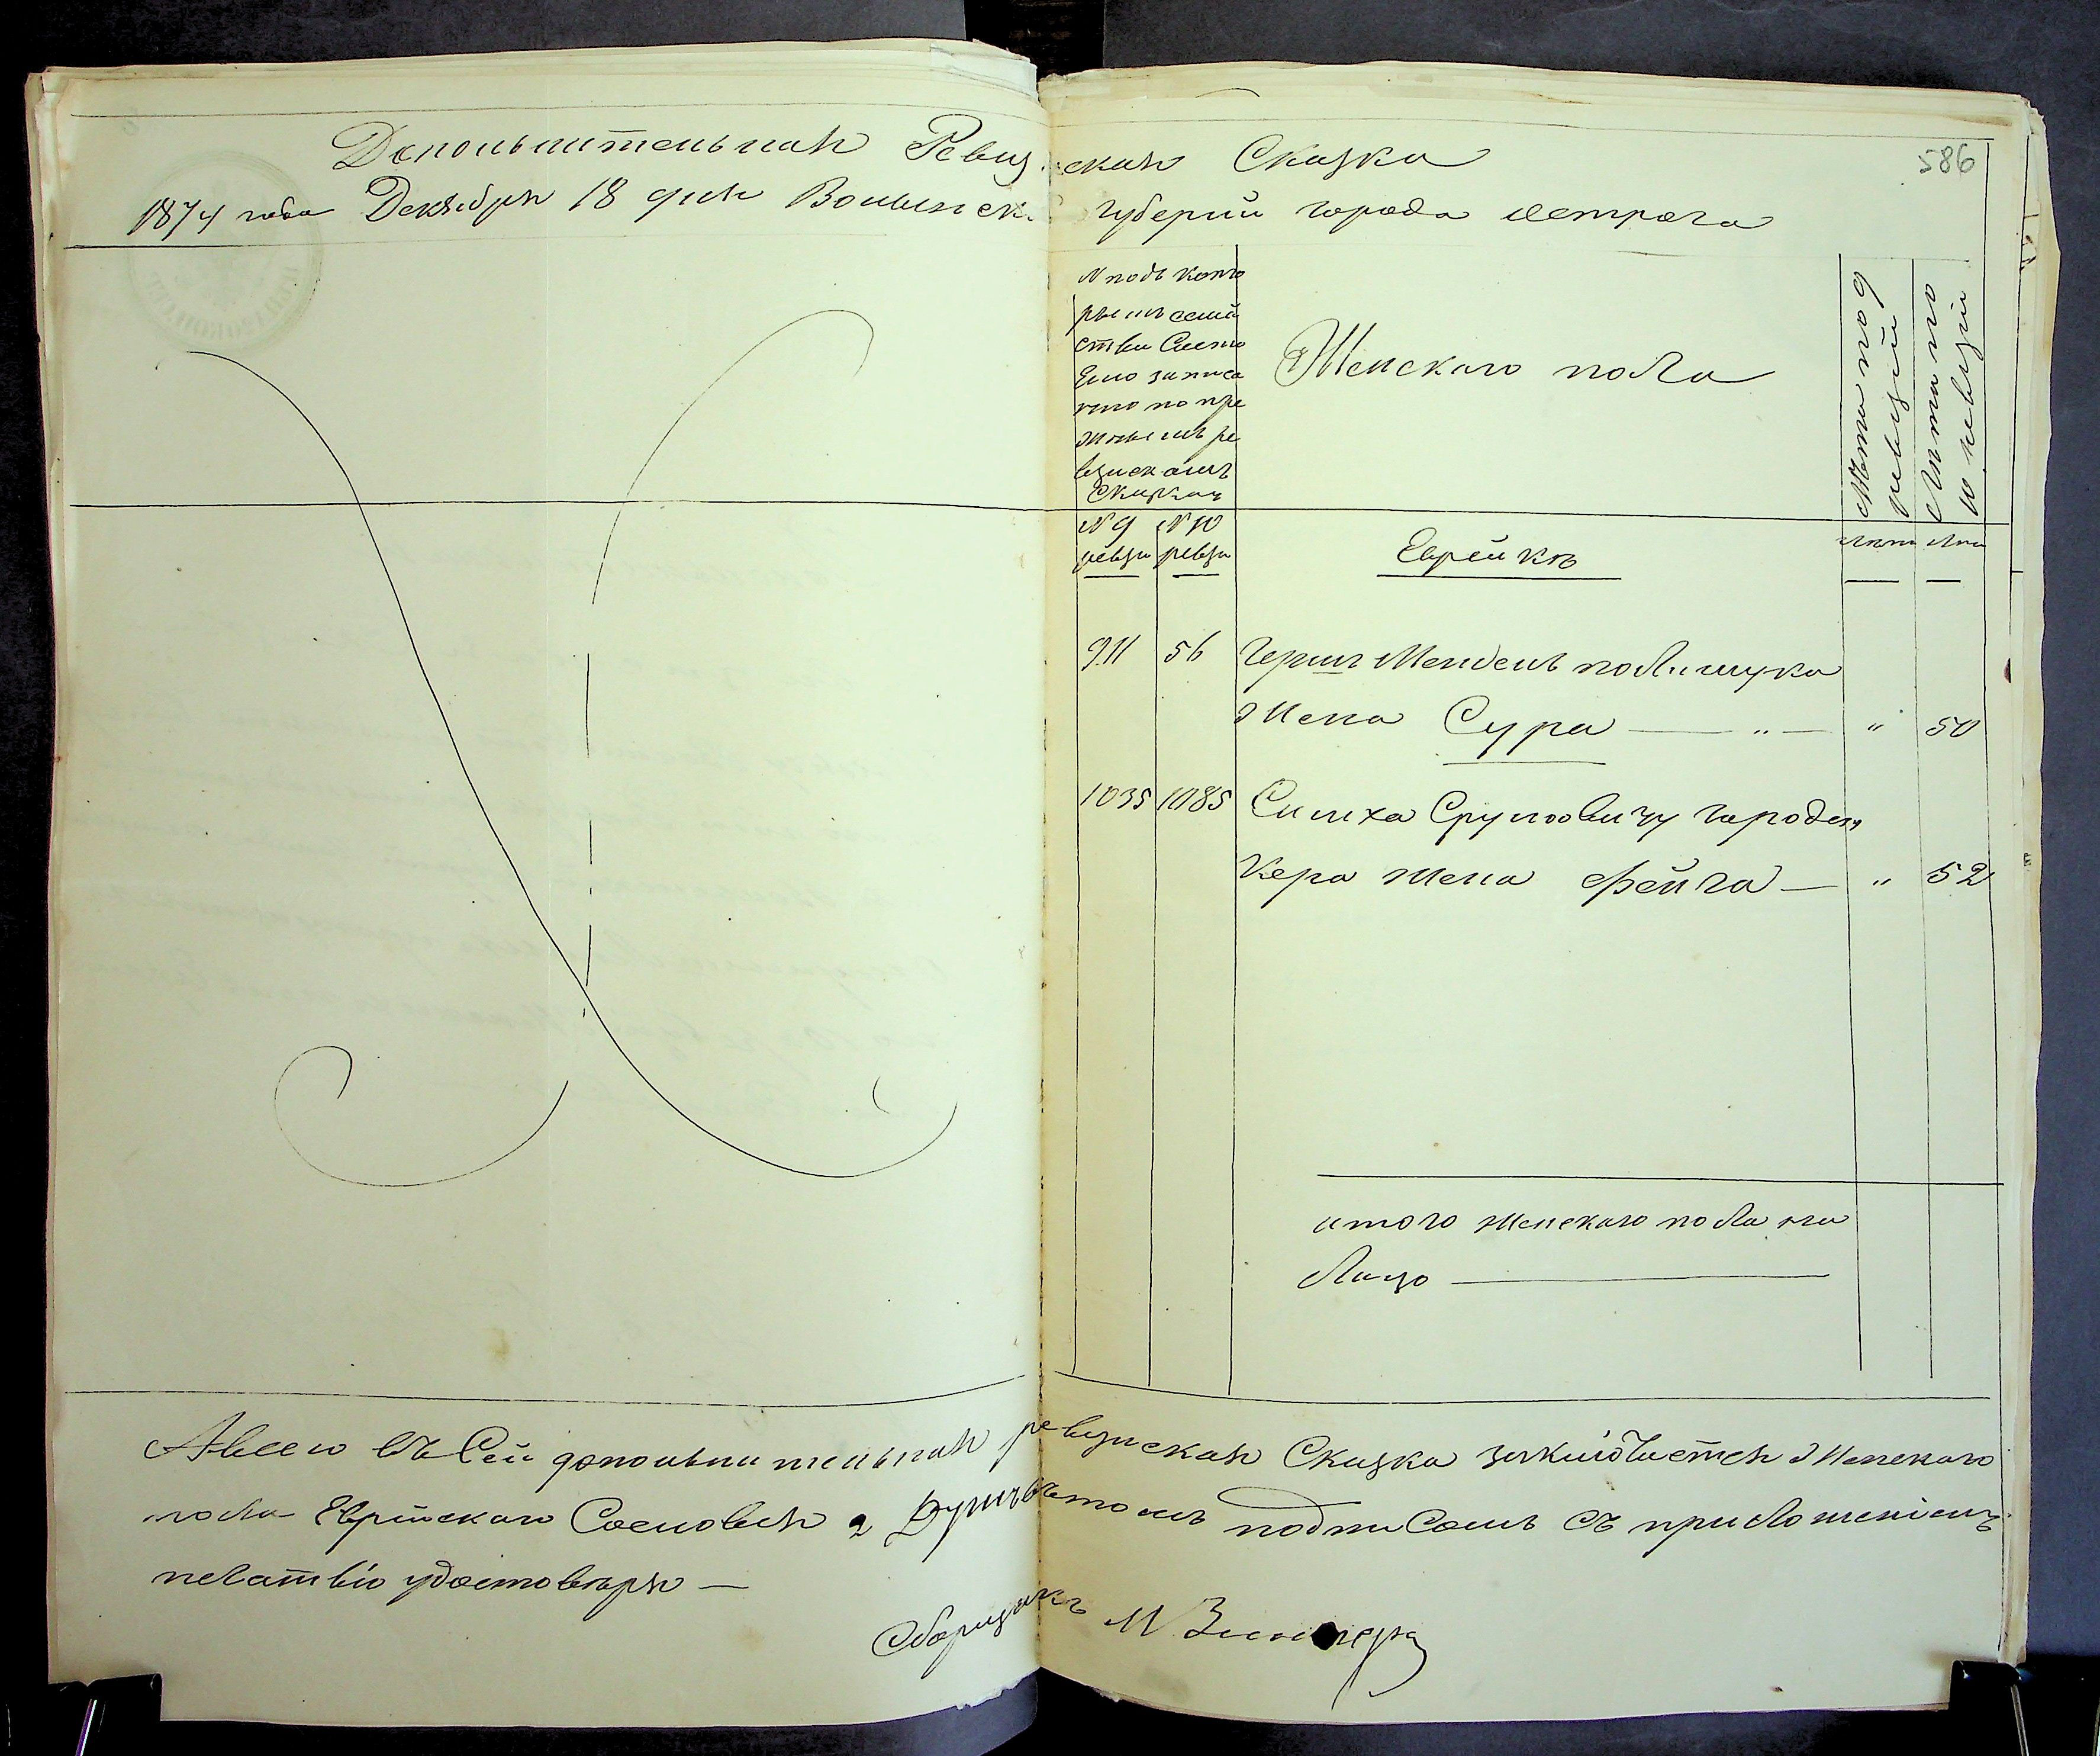 Дополнительная Ревизская Сказка
586
1874 года Декабря 18 дня Волынской губернии города Острога
№ подъ кото
рымъ семей
ство Состо
яно записа
но по пре
жнымъ ре
визскамъ
Сказкам
Женскаго пола
Лѣта по 9 ревизіи
Лѣта по 10 ревизіи
№ 9 ревзи
№ 10 ревзи
Еврейкъ
лѣта
лѣта
911 56 Герш Мендель Полищука
жена Сура — „ — „ 50
1035 1085 Симха Сруловичу городец
кера жена Фейга — „ 52
итого женскаго пола на
Лицо —
А всего въ Сей дополнительная ревизская Сказка заключается Женскаго
пола Еврейскаго Сословия 2 Душъ въ томъ подписомъ съ приложеніемъ
печатвію удостоверя —
Сборщикъ М.